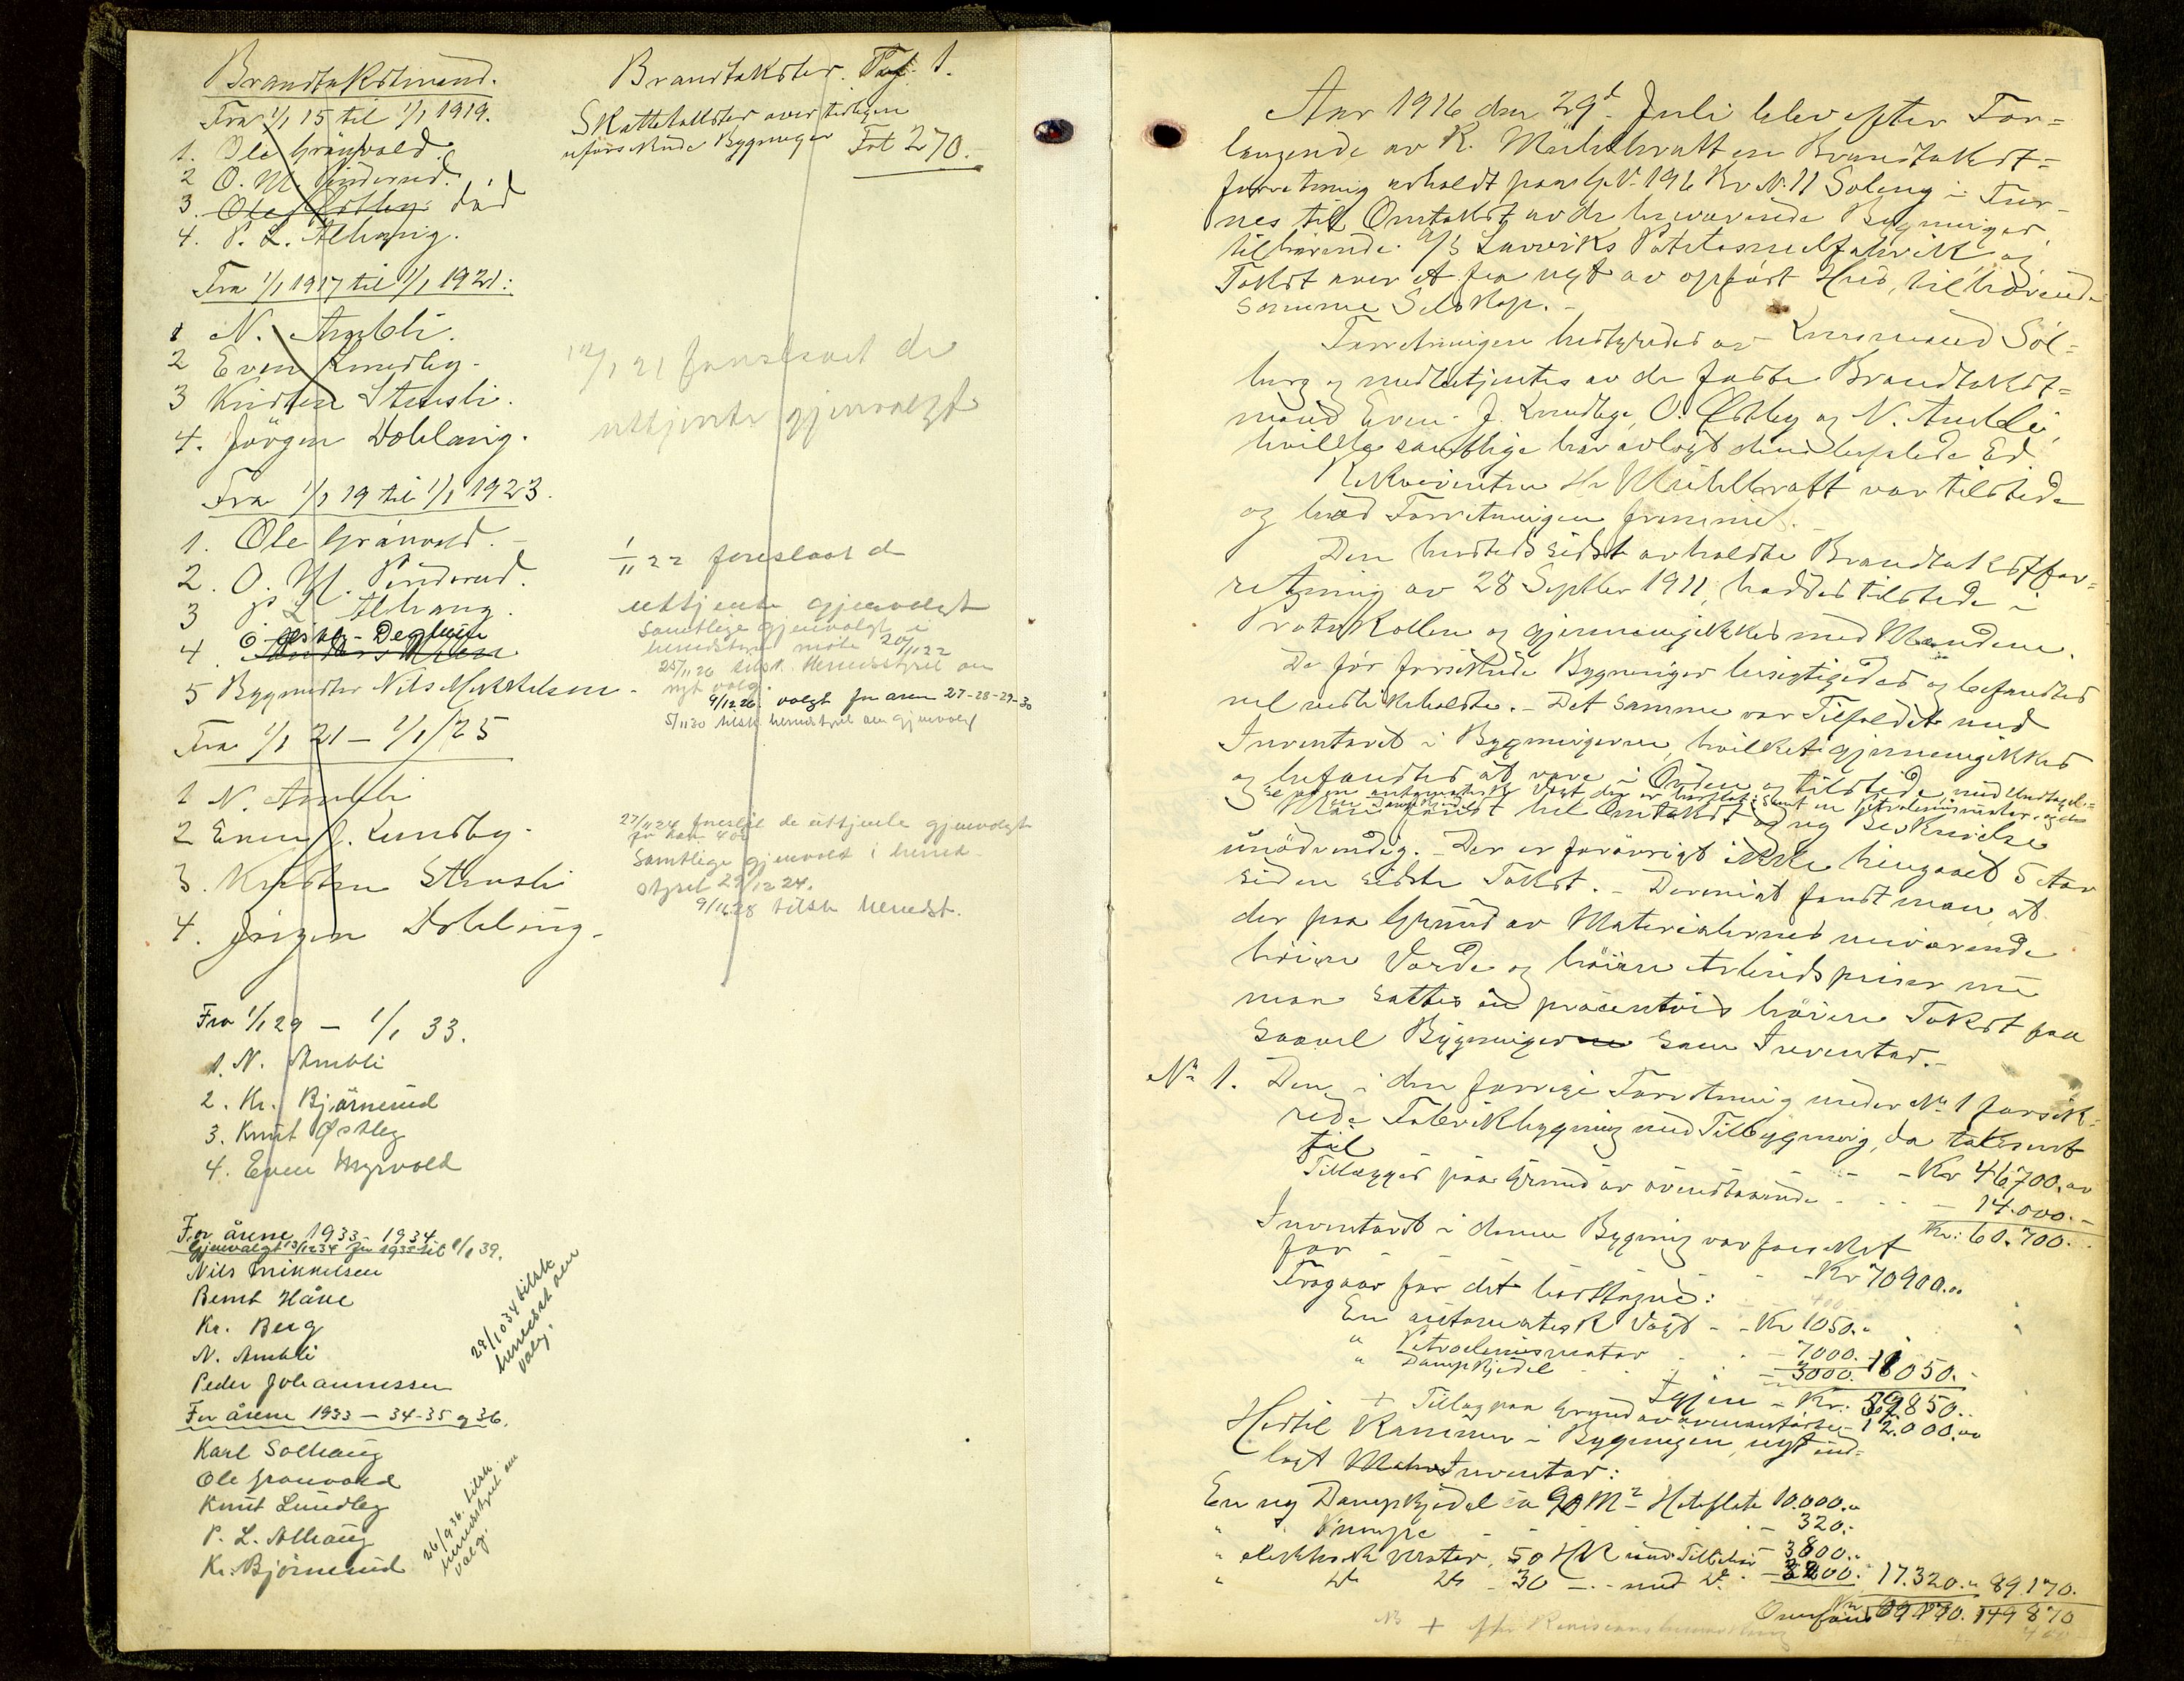 Brandtakstmænd.
Fra 1/1 15 til 1/1 1919.
1. Ole Grånvold.
2 O. M. Pinderud.
3. Ole Østby. död
4. P. L. Alhaug.
Fra 1/1 1917 til 1/1 1921:
1 N. Ambli.
2 Even Lundby.
3 Kristen Stensli.
4. Jörgen Dobloug.
Fra 1/1 19 til 1/1 1923.
1. Ole Grånvold.
2. O. M. Pinderud.
3 P. L. Alhaug.
4
5 Bygmester Nils Mikkelsen
Fra 1/1 21 – 1/1/25
1 N. Ambli
2 Even J. Lundby.
3. Kristen Stensli
4. Jörgen Dobloug.
Fra 1/1 29 – 1/1 33.
1. N. Ambli
2. Kr. Björnerud
3. Knut Østby
4. Even Myrvold
For årene 1933 – 1934.
Gjenvalgt 13/12 34 for 1935 til 1/1 39.
Nils Mikkelsen
Bernt Håve
Kr. Berg
N. Ambli
Peder Johannessen
29/10 34 tilsk.
herredsst. om
valg.
For årene 1933 – 34-35 og 36.
Karl Solhaug
Ole Granvold
Knut Lundby
P. L. Alhaug
Kr. Björnerud
26/9 36. tilsk.
herredsstyret om
valg.
Brandtakster. Pag. 1.
Skattetakster over tidligere
uforsikrede Bygninger Fol 270.
12/1 21 foreslaat de
uttjente gjenvalgt
1/11 22 foreslaat de
uttjente gjenvalgt
Samtlige gjenvalgt i
herredsstyre möte 20/11 22
25/11 26 tilsk. Herredsstyret om
nyt valg.
9/12 26. valgt for aaren 27-28-29-30
5/11 30 tilsk. herredsstyret om gjenvalg
27/11 24 foreslåt de uttjente gjenvalgt
for nær. 4 år
Samtlige gjenvalgt i herreds-
styret 29/12 24.
9/11 28 tilsk. herredst.
Aar 1916 den 29d Juli blev efter For=
langende av R. Mühlbratt en Brandtakst=
forretning avholdt paa G. N. 196 Br. N. 11 Soleng i Fur-
nes til Omtakst av de herværende Bygninger,
tilhörende A/S Larviks Potetesmelfabrik og
Takst over et fra nyt av opfört Hus, tilhörende
samme Selskap. –
Forretningen bestyredes av Lensmand Sol=
berg og medbetjentes av de faste Brandtakst=
mænd Even J. Lundby, O. Østby og N. Ambli,
hvilke samtlige har avlagt den befalede Ed
Rekvirenten Hr Mühlbratt var tilstede
og bad Forretningen fremmet. –
Den hersteds sidst avholdte Brandtakstfor=
retning av 28 Septber 1911, haddes tilstede i
Protokollen og gjennemgikkes med Mændene.
De för forsikrede Bygninger besigtigedes og befandtes
vel vedlikeholdte. – Det samme var Tilfældet med
Inventaret i Bygningerne, hvilket gjennemgikkes
og befandtes at være i Orden og tilstede, med Undtagel=
se av en automatisk Vægt der er borttat, samt en Petroleumsmotor, og den
ene Dampkjedel
Man fandt hel Omtakst og ny Beskrivelse
unödvendig. – Der er forövrigt ikke hengaaet 5 Aar
siden sidste Takst. – Derimot fandt man, at
der paa Grund av Materialernes nuværende
höiere Værdi og höiere Arbeidspriser nu
maa sættes en procentvis höiere Takst paa
saavel Bygninger som Inventar. –
No 1. Den i den forrige Forretning under No 1 forsik=
rede Fabrikbygning med Tilbygning, da taksert
til - - Kr 46700.00
Tillægges paa Grund av ovenstaaende - - - 14.000. –
Kr: 60.700. –
Inventaret i denne Bygning var forsikret
for - - - Kr 70900.00
Fragaar for det borttagne:
En automatisk Vægt - - Kr 1050. –
" Petroleumsmotor - - 7000. –
" Dampkjedel - - 3000. – 11050. –
Igjen - Kr. 59850. –
+ Tillæg paa Grund av ovenanförte – 12.000.00
Hertil kommer i Bygningen nyt ind=
lagt Inventar:
En ny Dampkjedel ca 90 M2 Heteflate 10.000.00
" Pumpe - - - - 320. –
" elektrisk Motor, 50 HK med Tilbehör – 3800. –
" do do 30 – . – med do – 3200. – 17.320. – 89.170.
Overföres 149 870
NB + efter